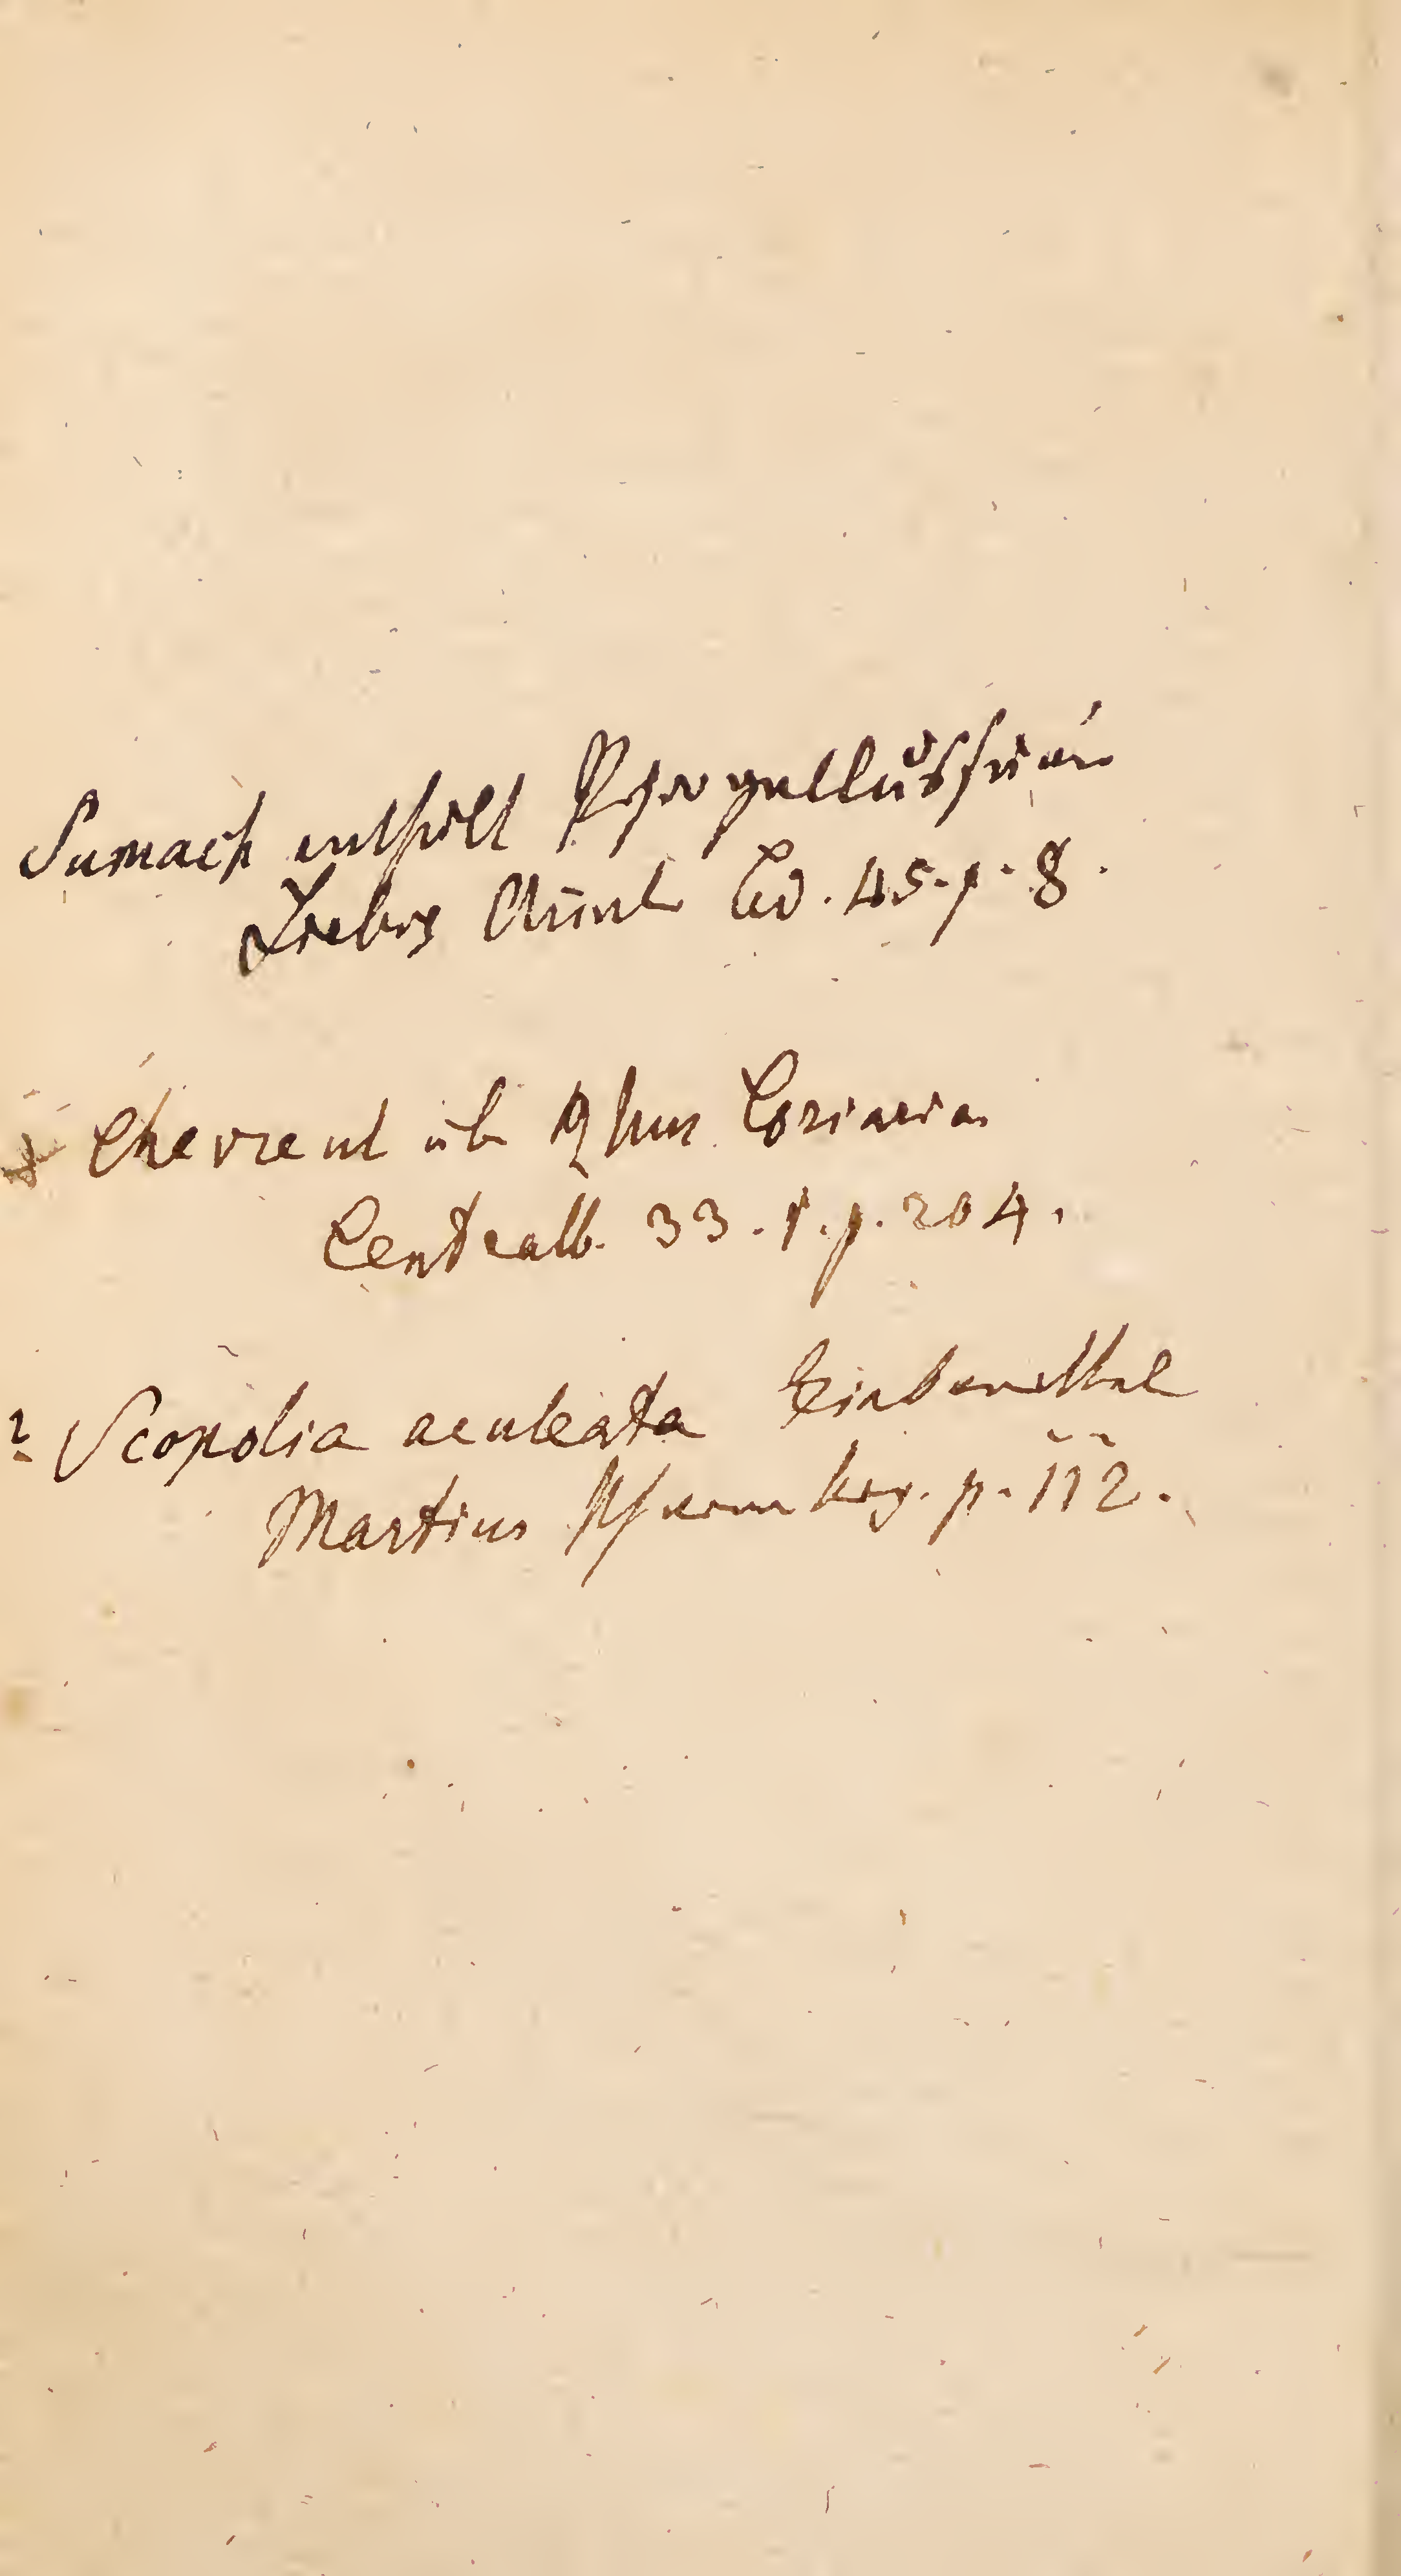 Sumach enthält Pyrogallussäure
Liebig Annal. Bd. 45. p. 8.
+ Chevreul üb. Rhus Coriaria
Centralb. 33. 1. p. 204.
? Scopolia aculeata
Martius Pharmakog. p. 112.